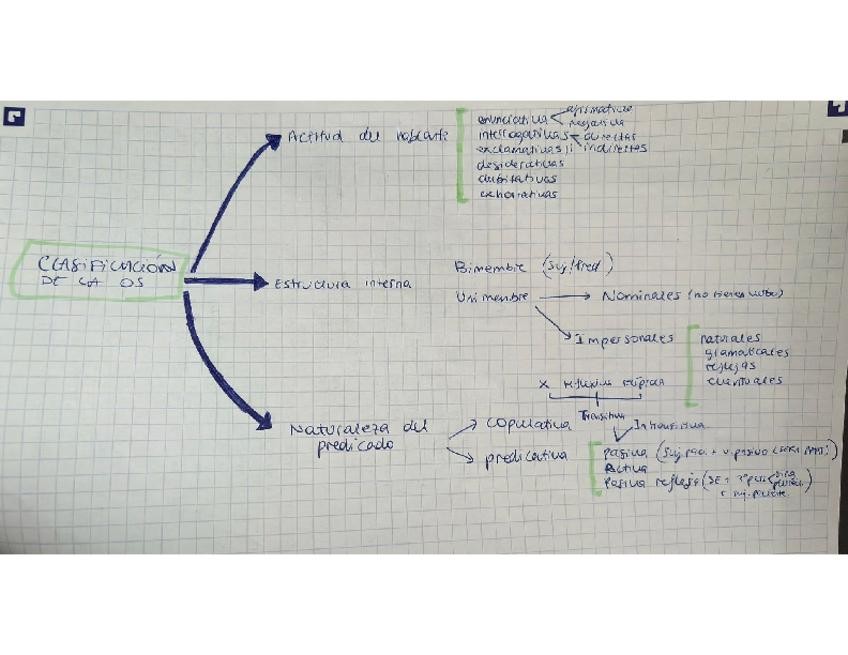 CLASIFICACIÓN
DE LA OS
Actitud del hablante
enunciativa
afirmativa
negativa
interrogativas
directas
exclamativas
indirectas
desiderativas
dubitativas
exhortativas
Estructura interna
Bimembre (Suj/Pred)
Unimembre
Nominales (no tienen verbo)
Impersonales
naturales
gramaticales
reflejas
eventuales
Naturaleza del
predicado
copulativa
predicativa
X
Transitiva
Intransitiva
pasiva (Suj. pac. + v. pasivo
Activa
Pasiva refleja (SE + 3ª pers
+ suj. paciente